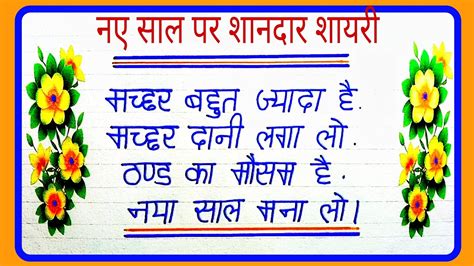 नए साल पर शानदार शायरी
मच्छर बहुत ज्यादा है.
मच्छर दानी लगा लो.
ठण्ड का मौसम है.
नया साल मना लो।